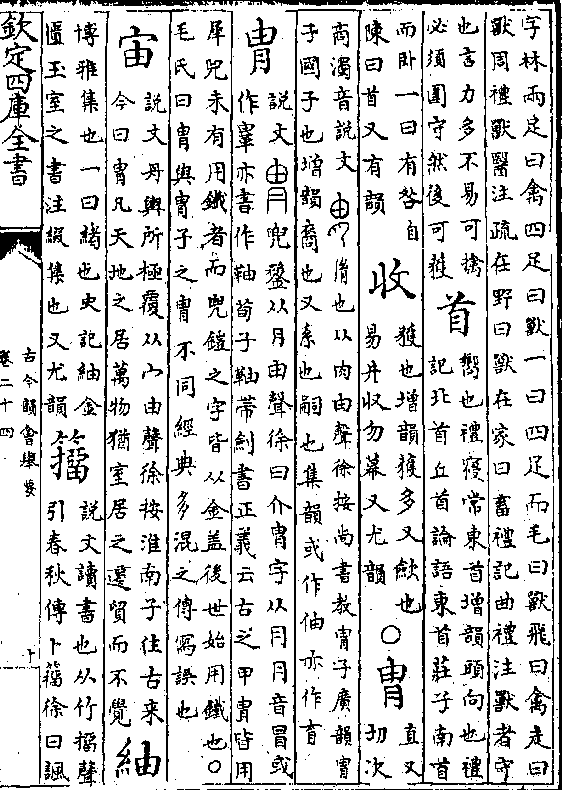 字林兩足曰禽四足曰獸一曰四足而毛曰獸飛曰禽走曰
獸周禮獸醫注疏在野曰獸在家曰畜禮記曲禮注獸者守
也言力多不易可擒
必須圍守然後可獲
首
嚮也禮寢常東首增韻頭向也禮
記北首丘首論語東首莊子南首
而卧一曰有咎自
陳曰首又有韻
收
獲也增韻獲多又歛也
易井收勿幕又尤韻
○
胄
直又
切次
商濁音說文 胤也从肉由聲徐按尚書教胄子廣韻胄
子國子也增韻裔也又系也嗣也集韻或作伷亦作育
冑
說文 兜鍪从冃由聲徐曰介冑字从冃冃音冒或
作 亦書作䩜荀子䩜帶劒書正義云古之甲冑皆用
犀兕未有用鐵者而兜鎧之字皆从金盖後世始用鐵也○
毛氏曰冑與胄子之胄不同經典多混之傳寫誤也
宙
說文舟輿所極覆从宀由聲徐按淮南子往古来
今曰胄凡天地之居萬物猶室居之遷貿而不覺
紬
博雅集也一曰緒也史記紬金
匱玉室之書注綴集也又尤韻
籀
說文讀書也从竹㩅聲
引春秋傳卜籀徐曰諷
欽定四庫全書
古今韻會舉要
卷二十四